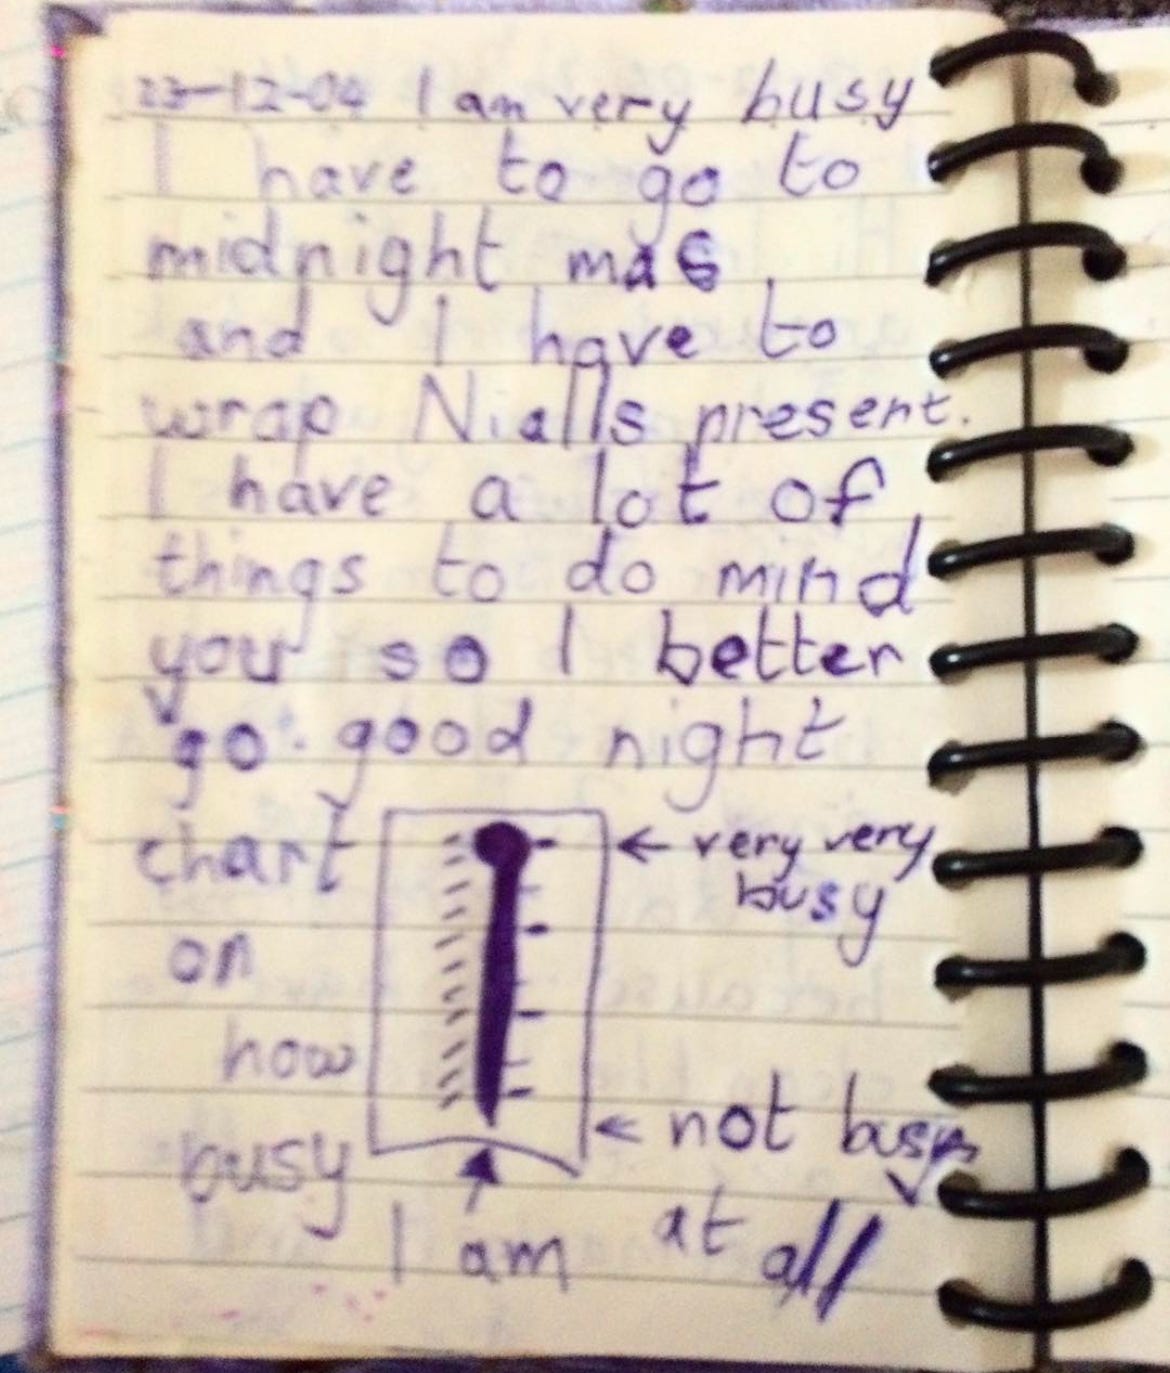 23-12-04 I am very busy
I have to go to
midnight mas
and I have to
wrap Nialls present.
I have a lot of
things to do mind
you so I better
go. good night
chart
on
how
busy
I am
← very very
busy
← not busy
at all